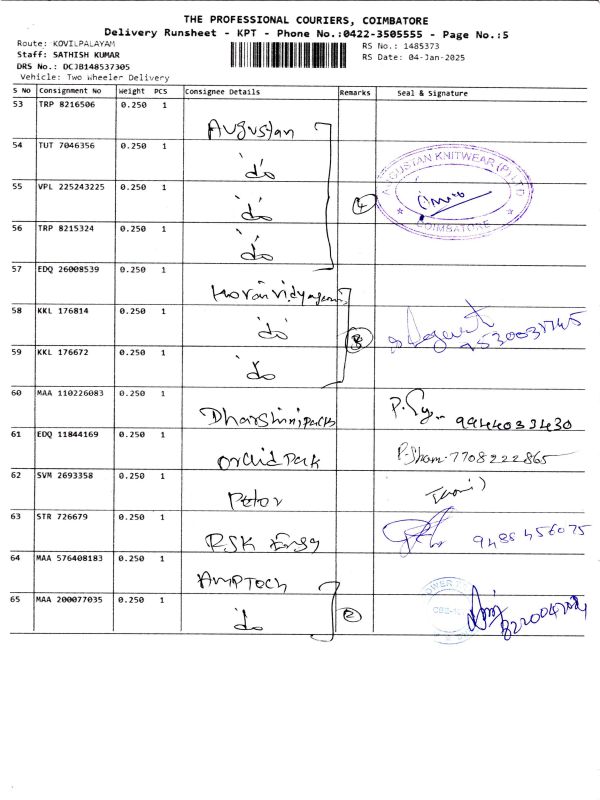 THE PROFESSIONAL COURIERS, COIMBATORE
Delivery Runsheet - KPT - Phone No.:0422-3505555 - Page No.:5
Route: KOVILPALAYAM
Staff: SATHISH KUMAR
DRS No.: DCJB148537305
Vehicle: Two Wheeler Delivery
RS No.: 1485373
RS Date: 04-Jan-2025
S No Consignment No Weight PCS Consignee Details Remarks Seal & Signature
53 TRP 8216506 0.250 1 Augustan
54 TUT 7046356 0.250 1 "do"
55 VPL 225243225 0.250 1 "do" 4
AUGUSTAN KNITWEAR (P) LTD
COIMBATORE
56 TRP 8215324 0.250 1 "do"
57 EDQ 26008539 0.250 1
58 KKL 176814 0.250 1 "do" 3
59 KKL 176672 0.250 1 "do"
60 MAA 110226083 0.250 1 Dharshini packs 9944033430
61 EDQ 11844169 0.250 1 Orchid Park P. Sham. 7708222865
62 SVM 2693358 0.250 1 Petor
63 STR 726679 0.250 1 RSK Engg 9486456075
64 MAA 576408183 0.250 1 AMPTECH
65 MAA 200077035 0.250 1 "do" 2